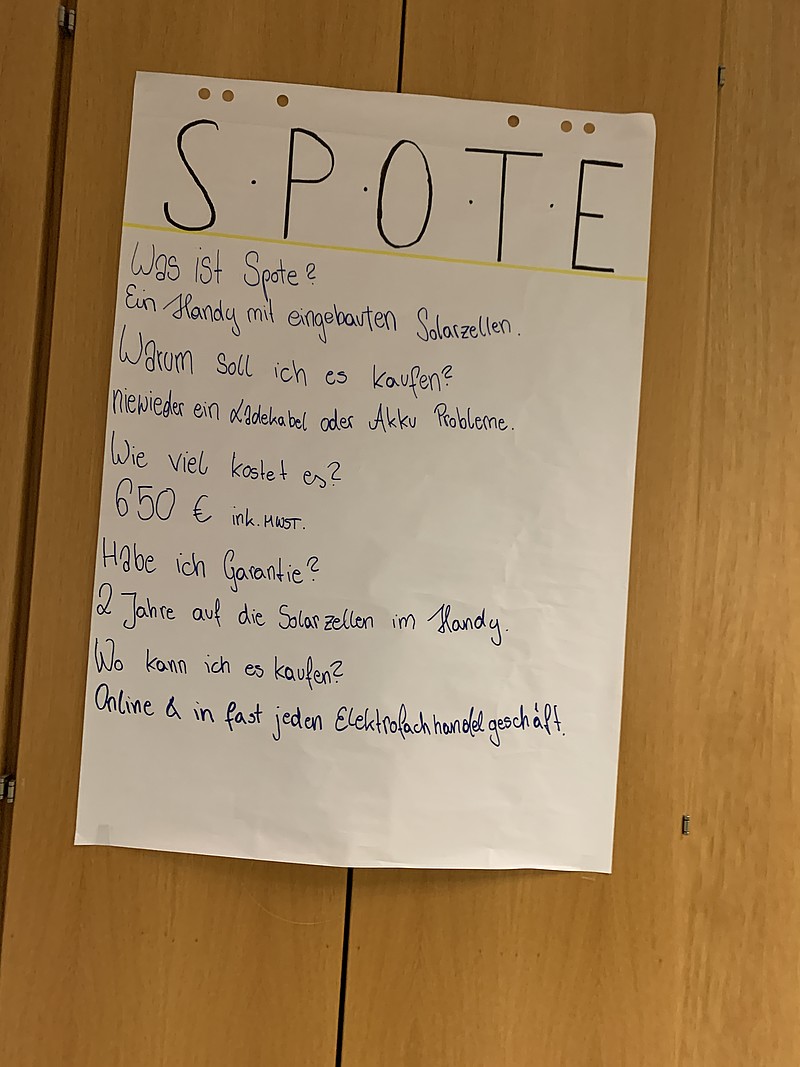 S.P.O.T.E
Was ist Spote?
Ein Handy mit eingebauten Solarzellen.
Warum soll ich es kaufen?
niewieder ein Ladekabel oder Akku Probleme.
Wie viel kostet es?
650 € ink. MWST.
Habe ich Garantie?
2 Jahre auf die Solarzellen im Handy.
Wo kann ich es kaufen?
Online & in fast jeden Elektrofachhandelgeschäft.